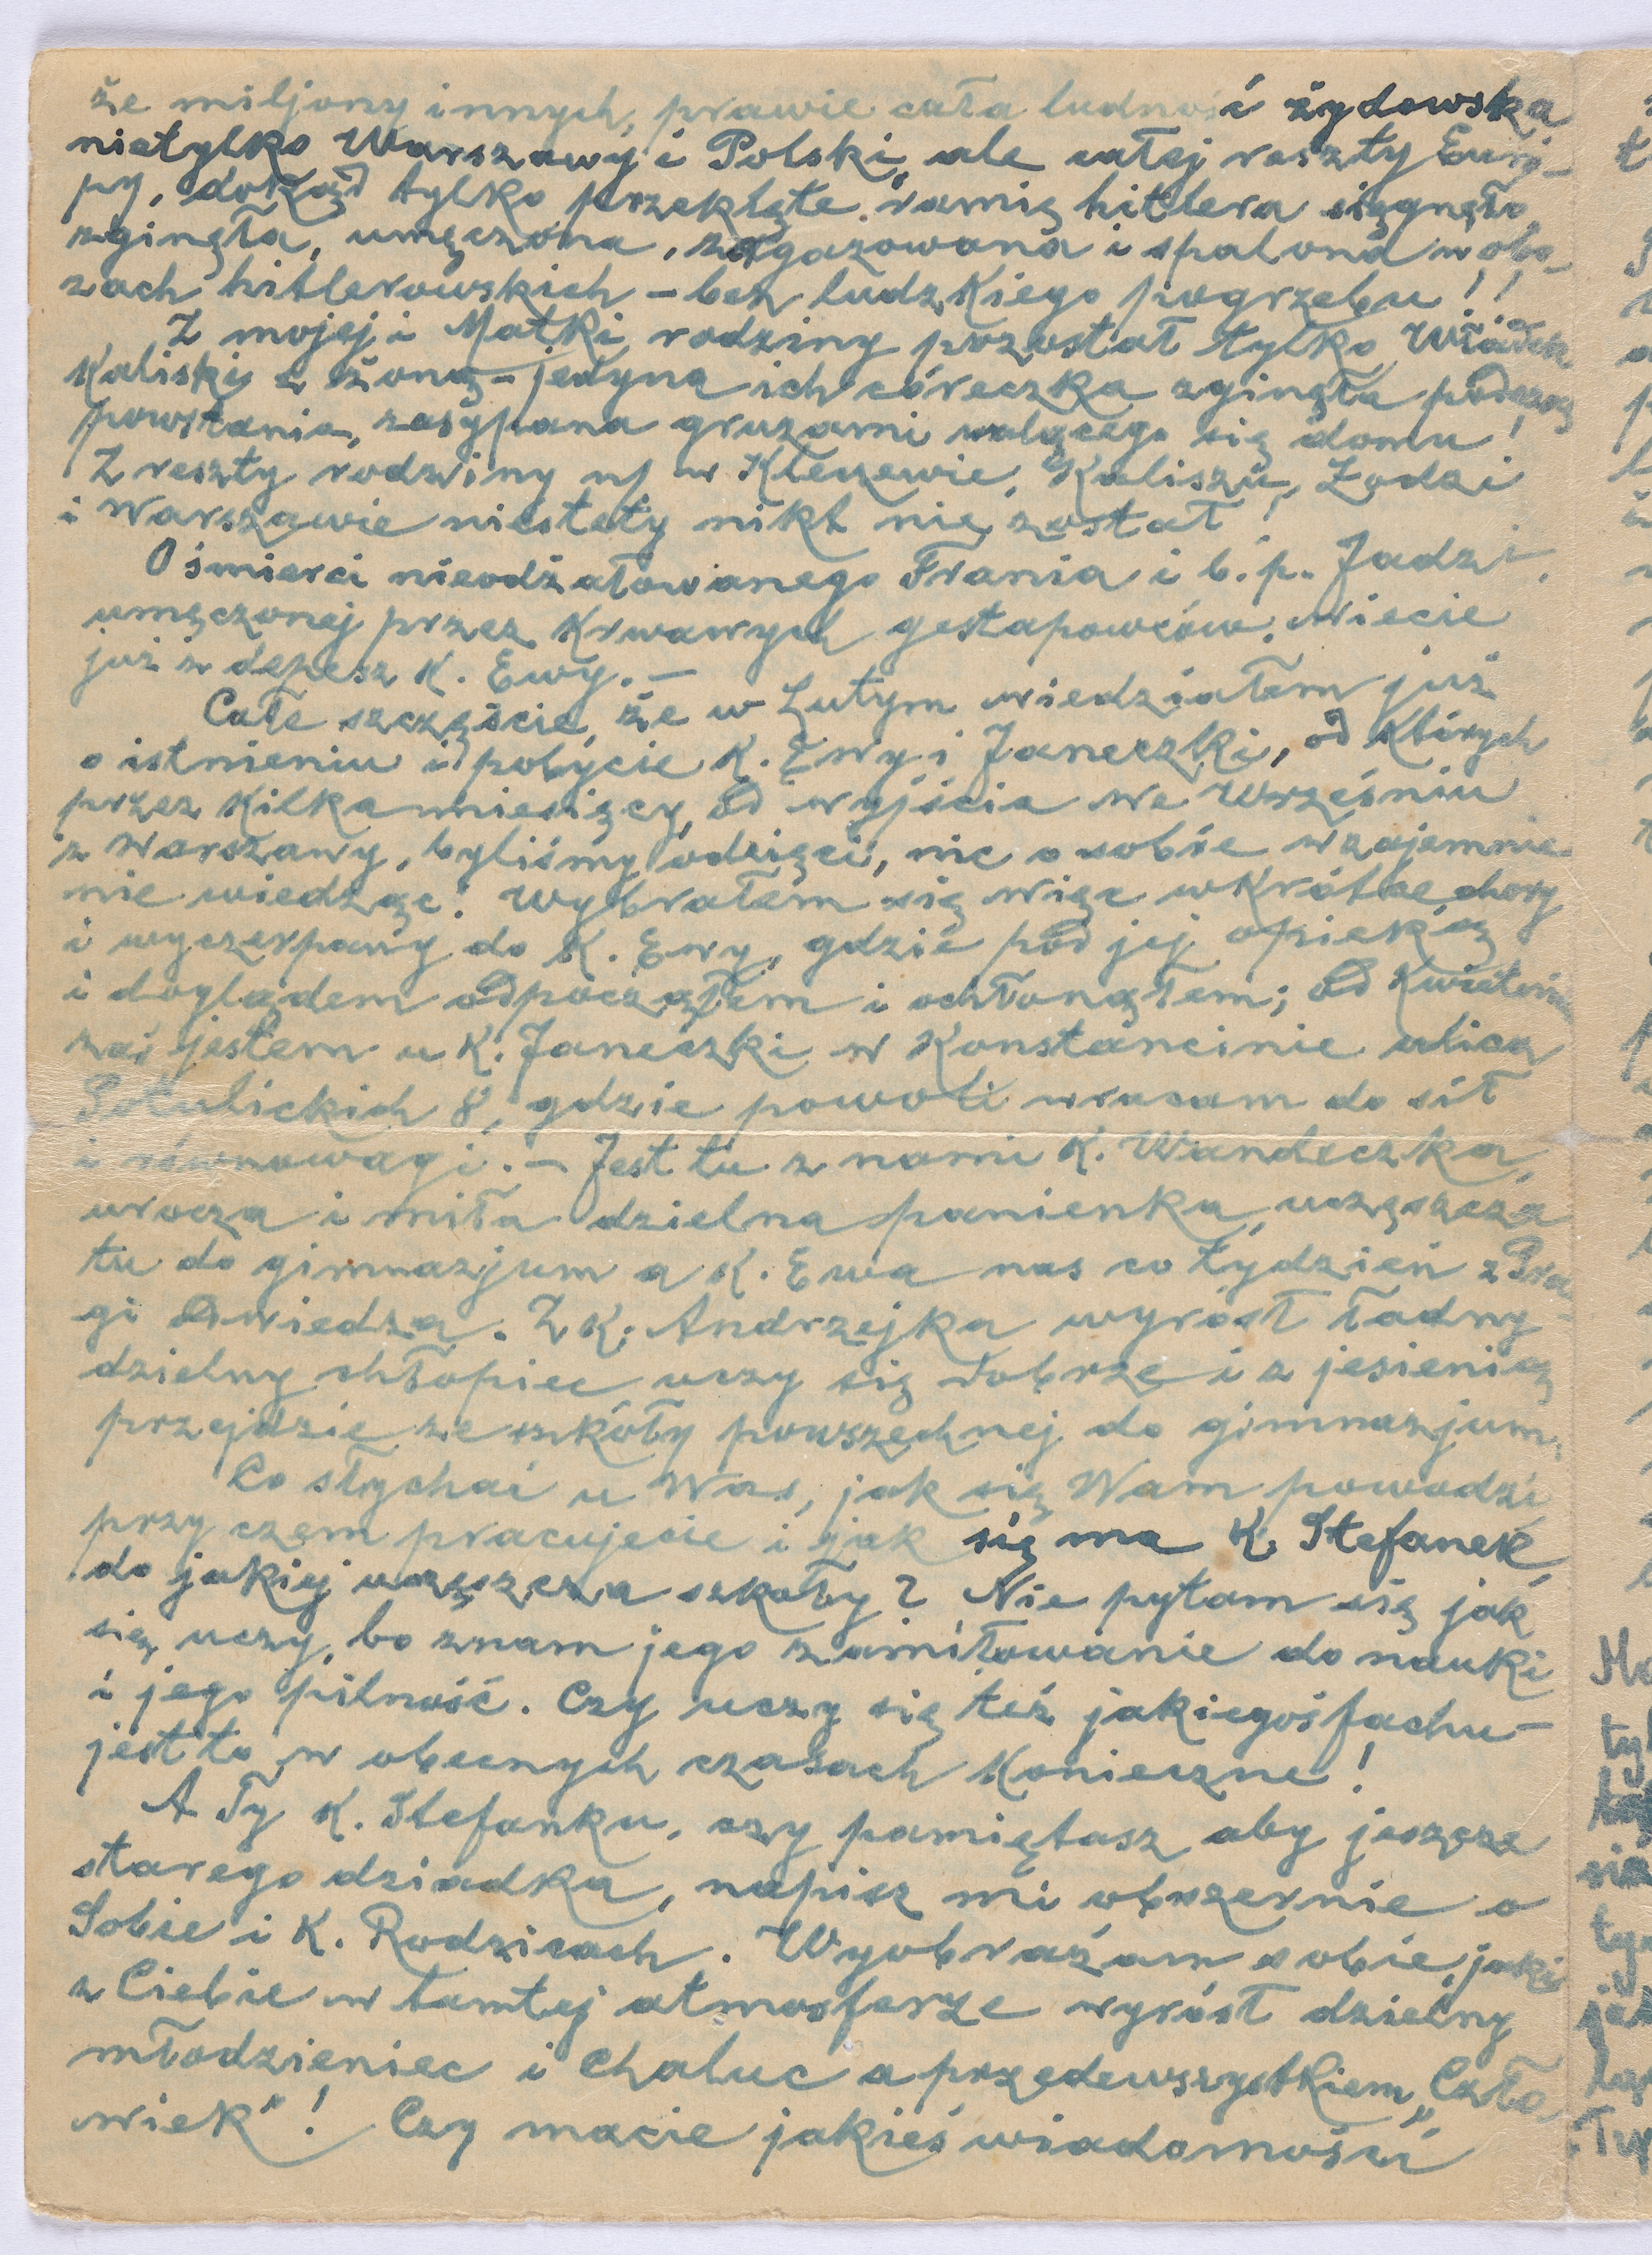 że miljony innych, prawie cała ludność żydowska
nietylko Warszawy i Polski, ale całej reszty Euro-
py, dokąd tylko przeklęte ramię hitlera sięgnęło,
zginęła, umęczona, zagazowana i spalona w obo-
zach hitlerowskich – bez ludzkiego pogrzebu!!
Z mojej i Matki rodziny pozostał tylko Władek
Kaliski z żoną – jedyna ich córeczka zginęła podczas
powstania, zasypana gruzami walącego się domu!
Z reszty rodziny w Kleczewie, Kaliszu, Łodzi
i Warszawie niestety nikt nie został!
O śmierci nieodżałowanego Frania i b. p. Jadzi,
umęczonej przez krwawych gestapowców, wiecie
już z depesz K. Ewy. –
Całe szczęście, że w Lutym wiedziałem już
o istnieniu i pobycie K. Ewy i Janeczki, od których
przez kilka miesięcy, od wyjścia we Wrześniu
z Warszawy, byliśmy odcięci, nic o sobie wzajemnie
nie wiedząc! Wybrałem się więc wkrótce chory
i wyczerpany do K. Ewy, gdzie pod jej opieką
i doglądem odpocząłem i ochłonąłem; od Kwietnia
zaś jestem u K. Janeczki w Konstancinie ulica
Potulickich 8, gdzie powoli wracam do sił
i równowagi. – Jest tu z nami K. Wandeczka,
urocza i miła dzielna panienka, uczęszcza
tu do gimnazjum a K. Ewa nas co tydzień z Pra-
gi odwiedza. Z K. Andrzejka wyrósł ładny
dzielny chłopiec uczy się dobrze i z jesienią
przejdzie ze szkoły powszechnej do gimnazjum.
Co słychać u Was, jak się Wam powodzi,
przy czem pracujecie i jak się ma K. Stefanek,
do jakiej uczęszcza szkoły? Nie pytam się jak
się uczy, bo znam jego zamiłowanie do nauki
i jego pilność. Czy uczy się też jakiegoś fachu –
jest to w obecnych czasach konieczne!
A Ty K. Stefanku, czy pamiętasz aby jeszcze
starego dziadka, napisz mi obszernie o
Sobie i K. Rodzicach. Wyobrażam sobie, jaki
z Ciebie w tamtej atmosferze wyrósł dzielny
młodzieniec i chaluc a przedewszystkiem „Czło-
wiek"! Czy macie jakieś wiadomości